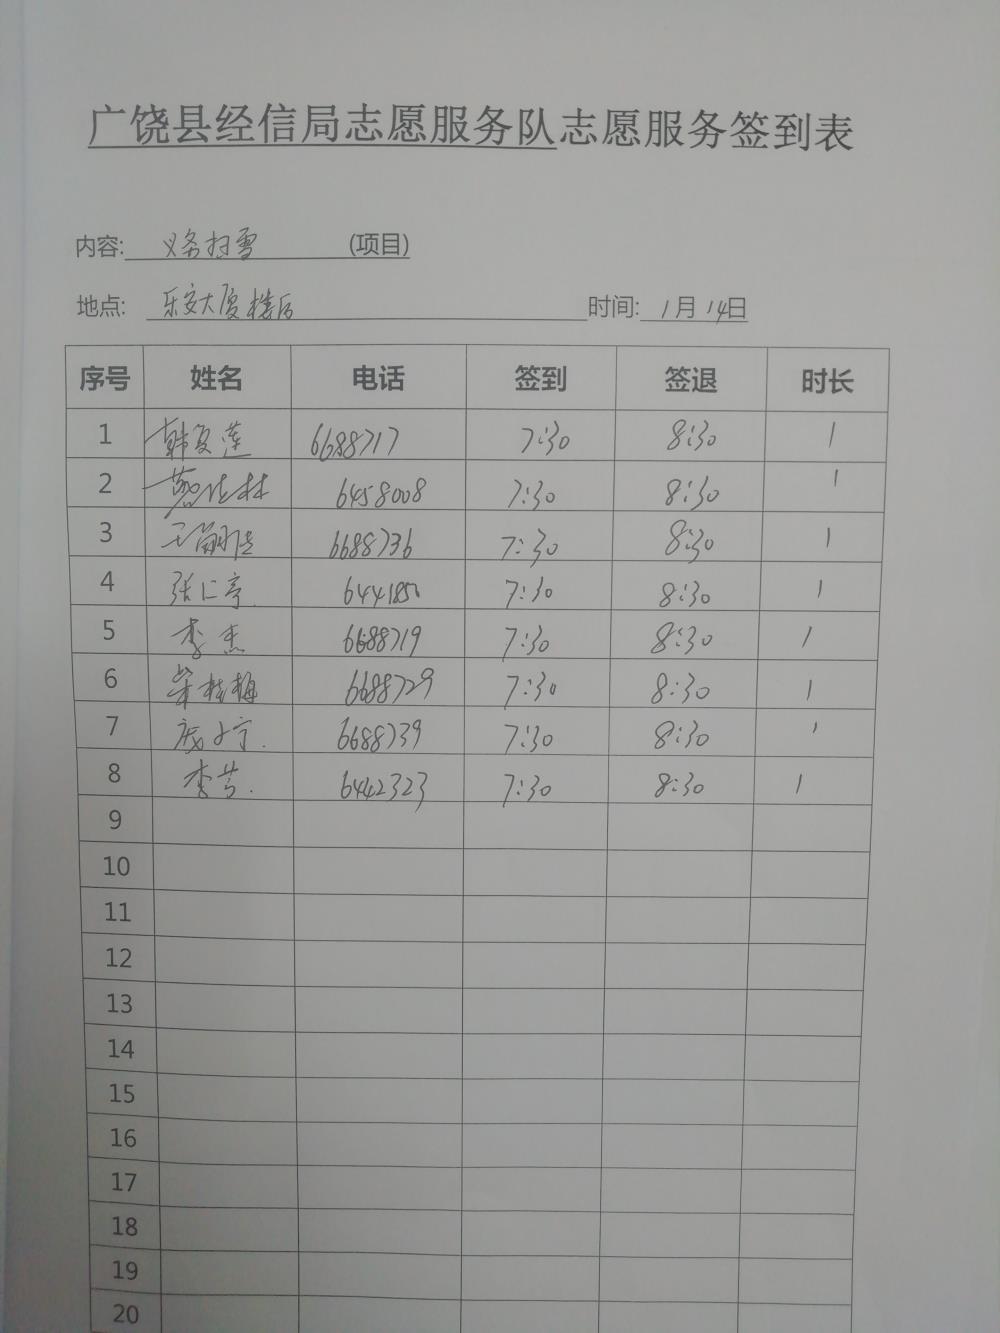 广饶县经信局志愿服务队志愿服务签到表
内容: 义务扫雪 (项目)
地点: 乐安大厦楼后 时间: 1月14日
序号 姓名 电话 签到 签退 时长
1 韩复莲 6688717 7:30 8:30 1
2 6458008 7:30 8:30 1
3 6688736 7:30 8:30 1
4 张仁亭 6441850 7:30 8:30 1
5 李杰 6688719 7:30 8:30 1
6 荣桂梅 6688729 7:30 8:30 1
7 6688739 7:30 8:30 1
8 李芸 6442323 7:30 8:30 1
9
10
11
12
13
14
15
16
17
18
19
20